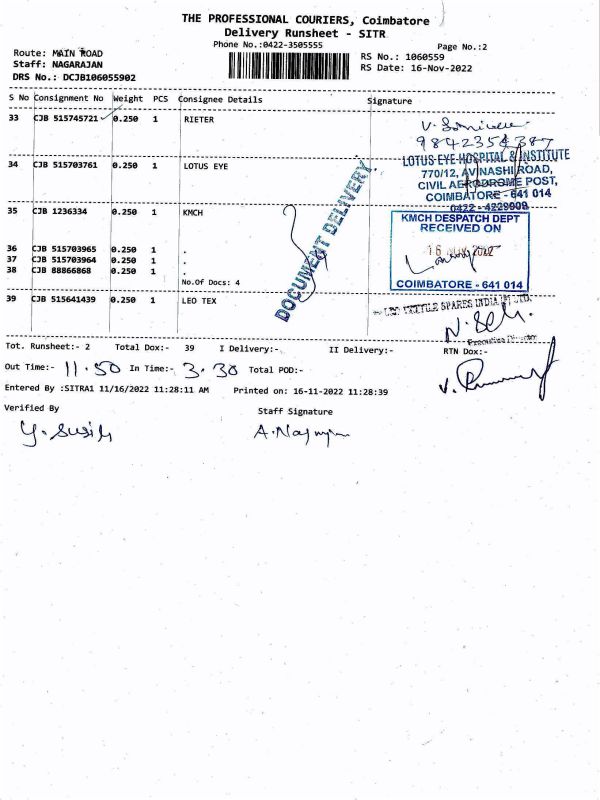 THE PROFESSIONAL COURIERS, Coimbatore
Delivery Runsheet - SITR
Phone No.:0422-3505555
Page No.:2
Route: MAIN ROAD
RS No.: 1060559
Staff: NAGARAJAN
RS Date: 16-Nov-2022
DRS No.: DCJB106055902
S No Consignment No Weight PCS Consignee Details Signature
33 CJB 515745721 0.250 1 RIETER
9842354387
34 CJB 515703761 0.250 1 LOTUS EYE
LOTUS EYE HOSPITAL & INSTITUTE
770/12, AVINASHI ROAD,
CIVIL AERODROME POST,
COIMBATORE - 641 014
0422 - 4229900
DOCUMENT DELIVERY
35 CJB 1236334 0.250 1 KMCH
KMCH DESPATCH DEPT
RECEIVED ON
16 NOV 2022
COIMBATORE - 641 014
36 CJB 515703965 0.250 1 .
37 CJB 515703964 0.250 1 .
38 CJB 88866868 0.250 1 .
No.Of Docs: 4
39 CJB 515641439 0.250 1 LEO TEX
TEXTILE SPARES INDIA
Executive Director
Tot. Runsheet:- 2 Total Dox:- 39 I Delivery:- II Delivery:- RTN Dox:-
Out Time:- 11.50 In Time:- 3.30 Total POD:-
Entered By :SITRA1 11/16/2022 11:28:11 AM Printed on: 16-11-2022 11:28:39
Verified By Staff Signature